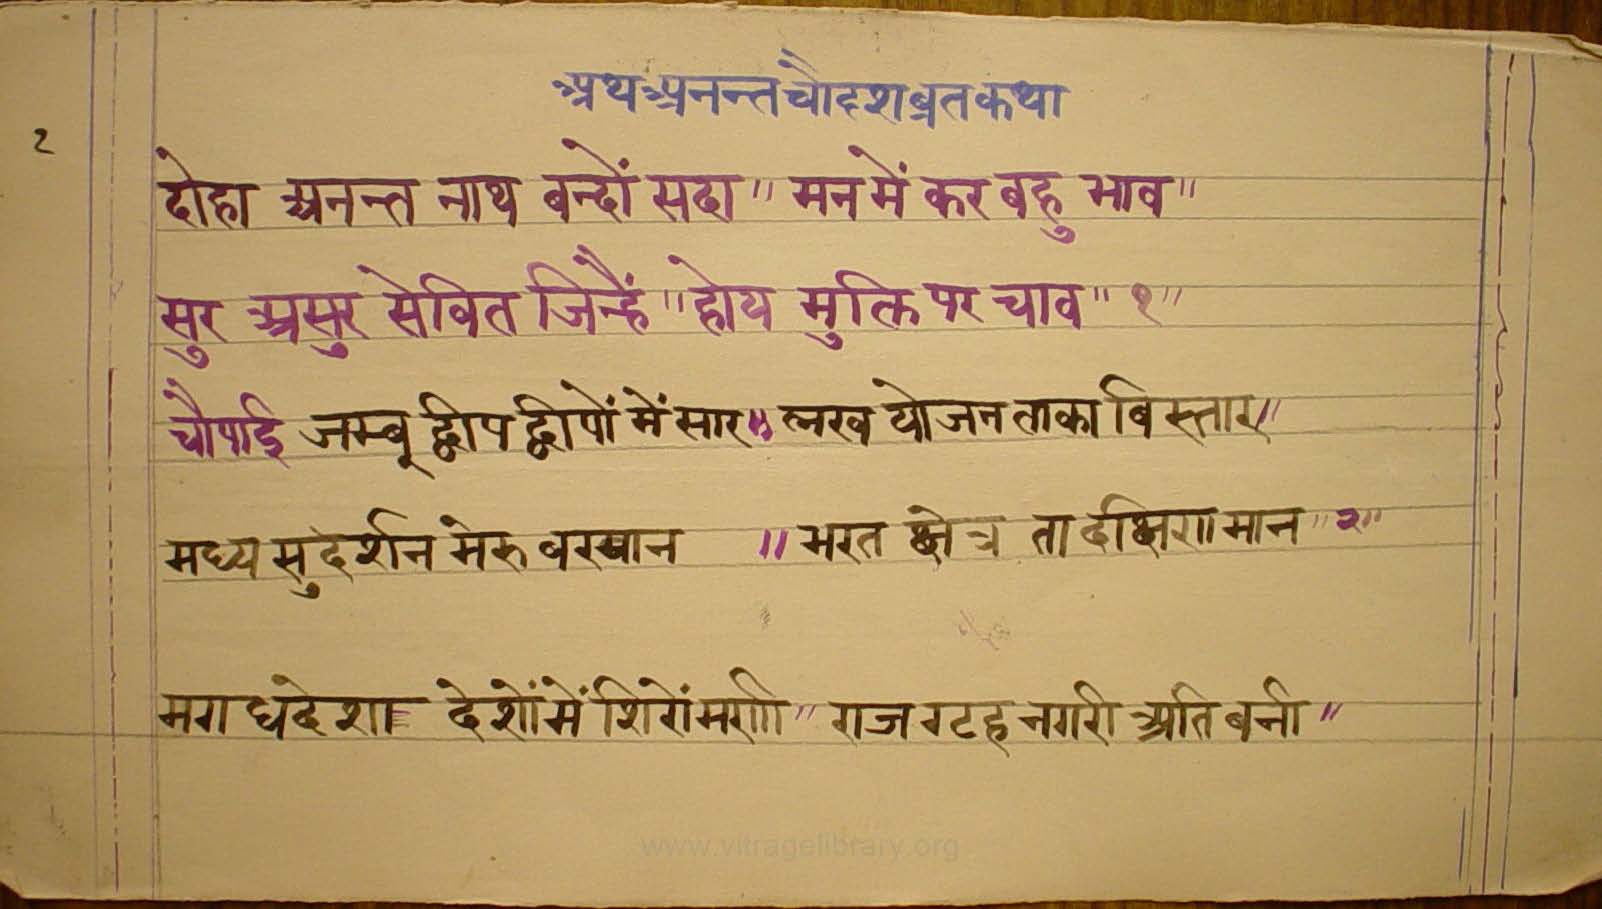 अथ अनन्त चौदश ब्रत कथा
२
दोहा अनन्त नाथ बन्दों सदा॥ मन में कर बहु भाव॥
सुर असुर सेवित जिन्हैं॥ होय मुक्ति पर चाव॥ १॥
चौपाई जम्बू द्वीप द्वीपों में सार॥ लख योजन ताका बिस्तार॥
मध्य सुदर्शन मेरु बखान ॥ भरत क्षेत्र ता दक्षिण मान॥ २॥
मगध देशा देशों में शिरोंमणी॥ राजगृह नगरी अति बनी॥
www.vitragelibrary.org